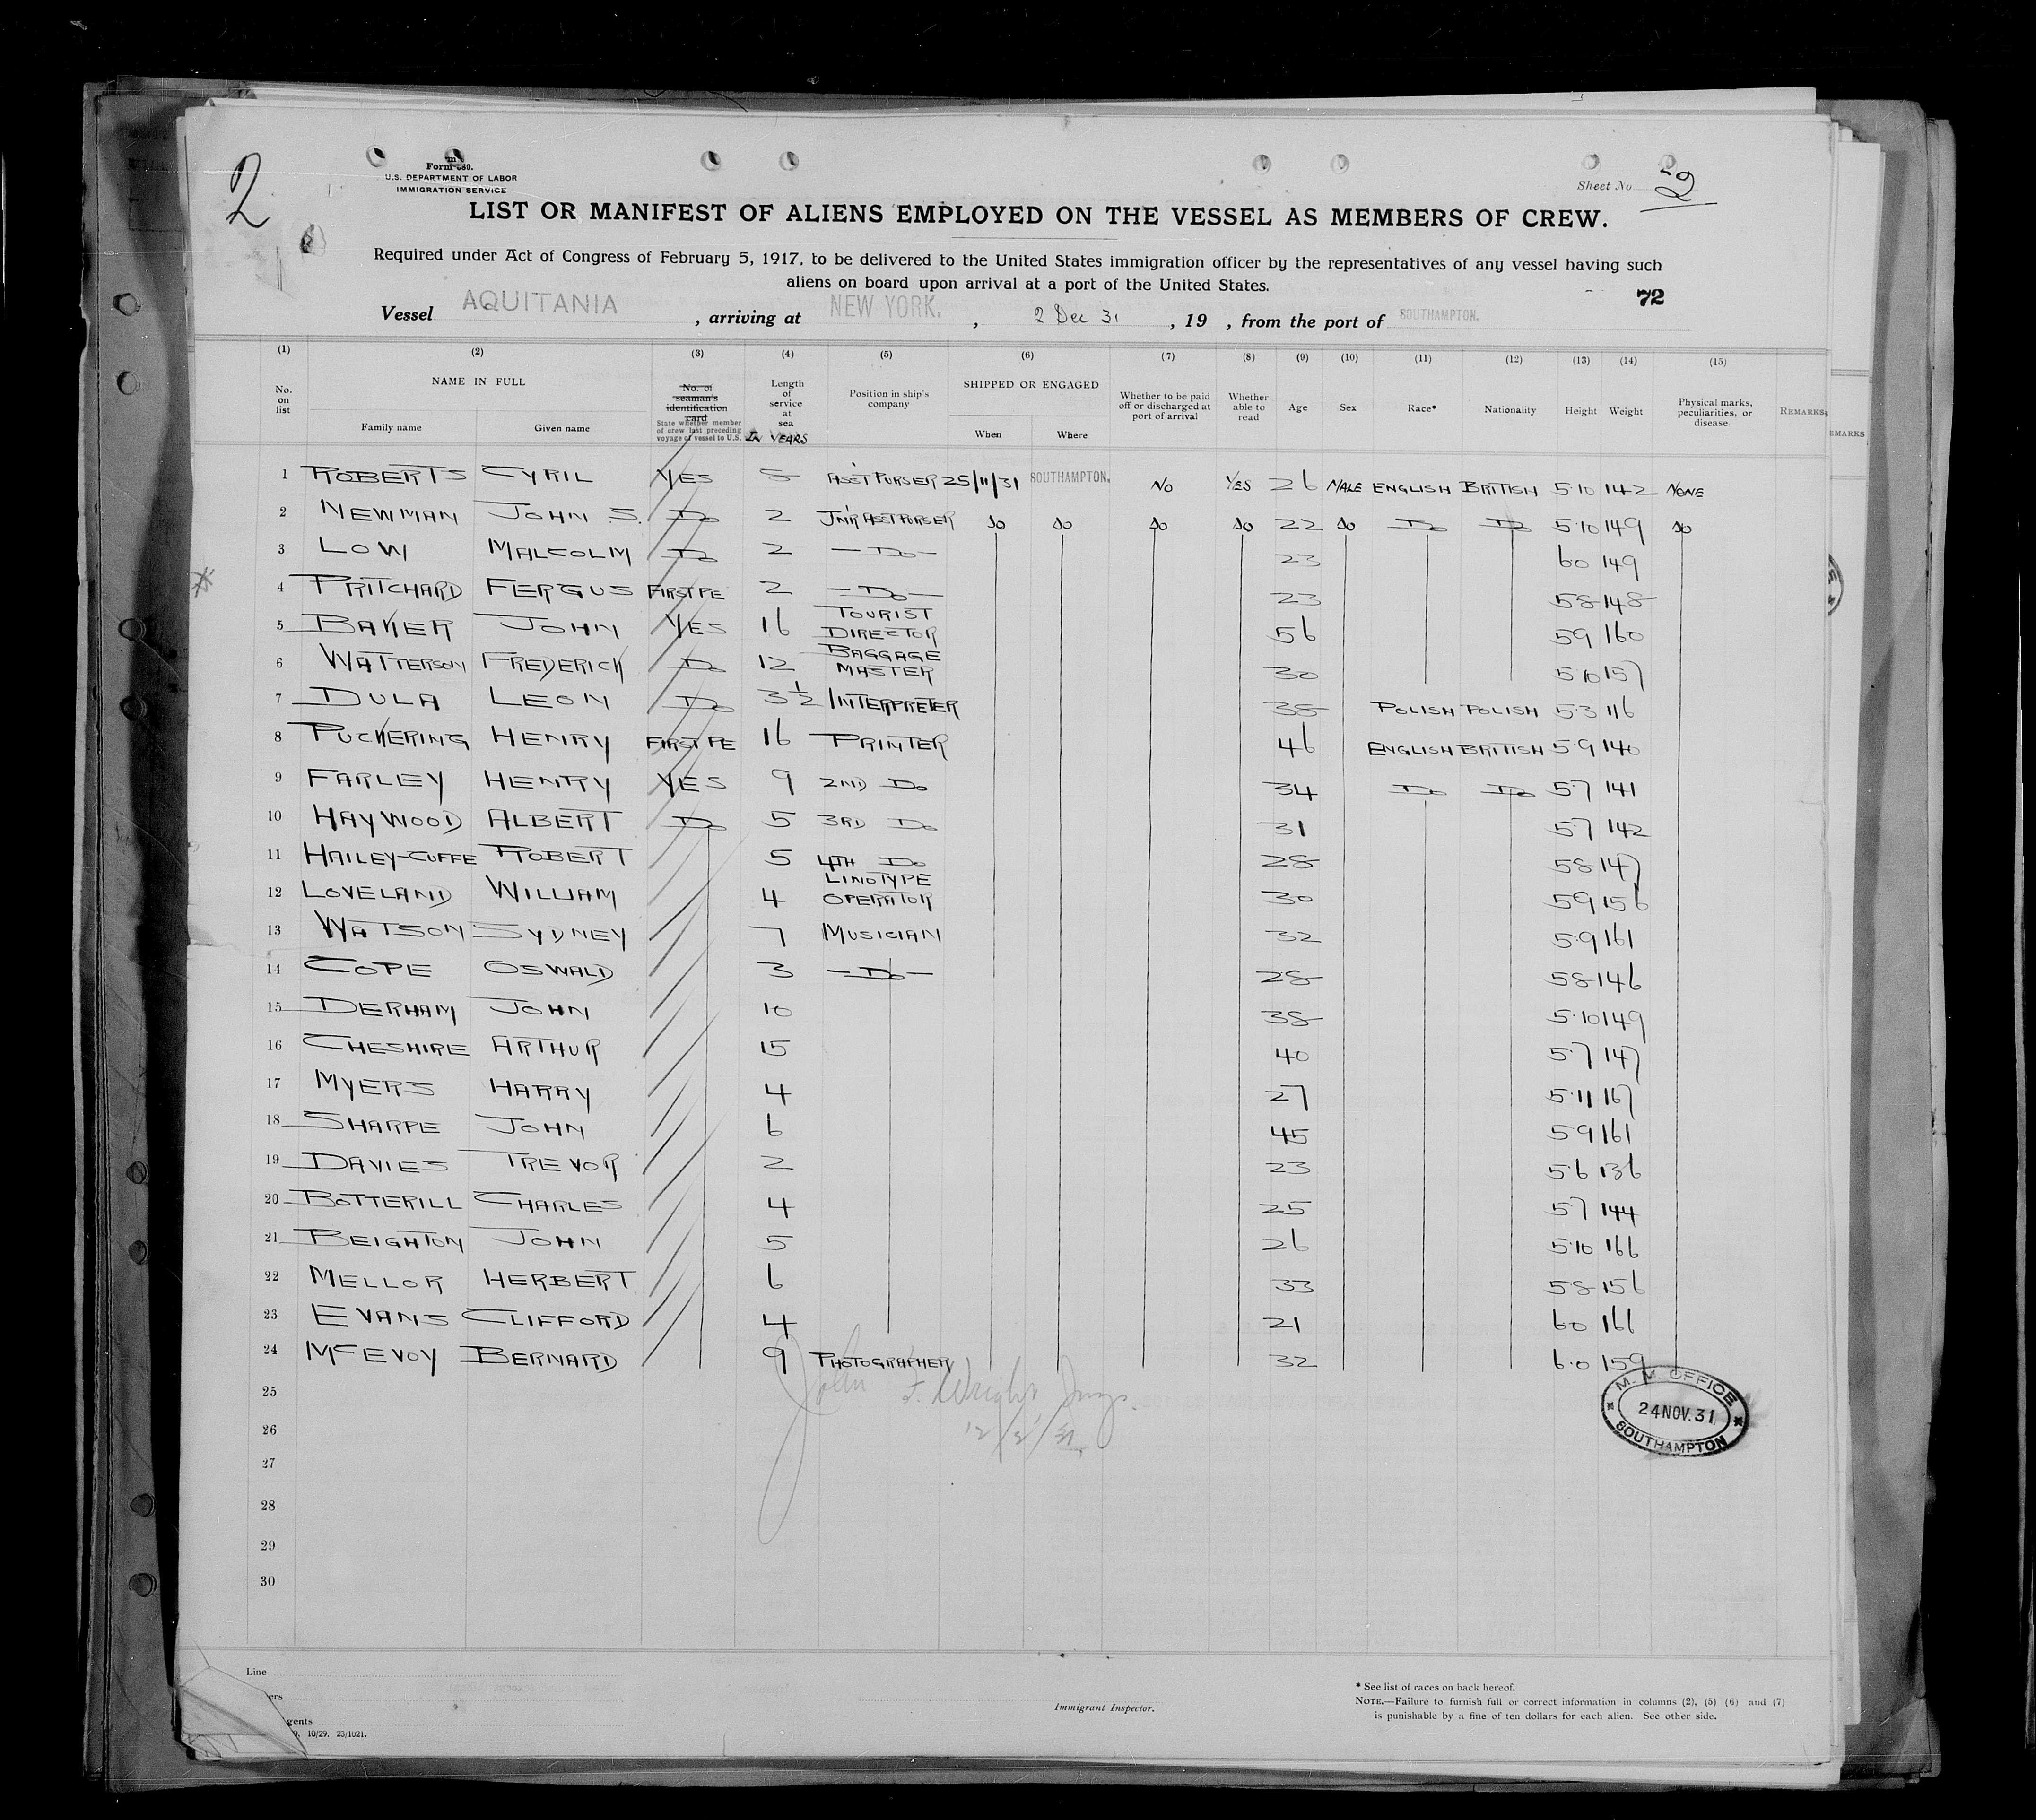 2
Form 689.
U.S. DEPARTMENT OF LABOR
IMMIGRATION SERVICE
Sheet No. 2
LIST OR MANIFEST OF ALIENS EMPLOYED ON THE VESSEL AS MEMBERS OF CREW.
Required under Act of Congress of February 5, 1917, to be delivered to the United States immigration officer by the representatives of any vessel having such
aliens on board upon arrival at a port of the United States.
72
Vessel AQUITANIA , arriving at NEW YORK. , 2 Dec 31 , 19 , from the port of SOUTHAMPTON.
(1) (2) (3) (4) (5) (6) (7) (8) (9) (10) (11) (12) (13) (14) (15)
No. on list NAME IN FULL Family name Given name No. of seaman's identification card State whether member of crew last preceding voyage of vessel to U.S. Length of service at sea IN YEARS Position in ship's company SHIPPED OR ENGAGED When Where Whether to be paid off or discharged at port of arrival Whether able to read Age Sex Race* Nationality Height Weight Physical marks, peculiarities, or disease REMARKS EMARKS
1 ROBERTS CYRIL YES 8 ASST PURSER 25/11/31 SOUTHAMPTON. NO YES 26 MALE ENGLISH BRITISH 5·10 142 NONE
2 NEWMAN JOHN S. Do 2 JNR ASST PURSER do do do do 22 do Do Do 5·10 149 do
3 LOW MALCOLM Do 2 — Do — 23 60 149
4 PRITCHARD FERGUS FIRST PE 2 — Do — 23 58 148
5 BAKER JOHN YES 16 TOURIST DIRECTOR 56 59 160
6 WATTERSON FREDERICK Do 12 BAGGAGE MASTER 30 5·10 157
7 DULA LEON Do 3½ INTERPRETER 38 POLISH POLISH 5·3 116
8 PUCKERING HENRY FIRST PE 16 PRINTER 46 ENGLISH BRITISH 5·9 140
9 FARLEY HENRY YES 9 2ND Do 34 Do Do 5·7 141
10 HAYWOOD ALBERT Do 5 3RD Do 31 5·7 142
11 HAILEY-CUFFE ROBERT 5 4TH Do 28 58 147
12 LOVELAND WILLIAM 4 LINOTYPE OPERATOR 30 59 156
13 WATSON SYDNEY 7 MUSICIAN 32 5·9 161
14 COPE OSWALD 3 — Do — 28 58 146
15 DERHAM JOHN 10 38 5·10 149
16 CHESHIRE ARTHUR 15 40 5·7 147
17 MYERS HARRY 4 27 5·11 167
18 SHARPE JOHN 6 45 59 161
19 DAVIES TREVOR 2 23 5·6 136
20 BOTTERILL CHARLES 4 25 57 144
21 BEIGHTON JOHN 5 26 5·10 166
22 MELLOR HERBERT 6 33 58 156
23 EVANS CLIFFORD 4 21 60 166
24 McEVOY BERNARD 9 PHOTOGRAPHER 32 6·0 159
25
26
27
28
29
30
John F. Wright
12/2/31
M. M. OFFICE
24 NOV. 31
SOUTHAMPTON
Line
ers
gents
10/29. 23/1021.
Immigrant Inspector.
* See list of races on back hereof.
NOTE.—Failure to furnish full or correct information in columns (2), (5) (6) and (7)
is punishable by a fine of ten dollars for each alien. See other side.